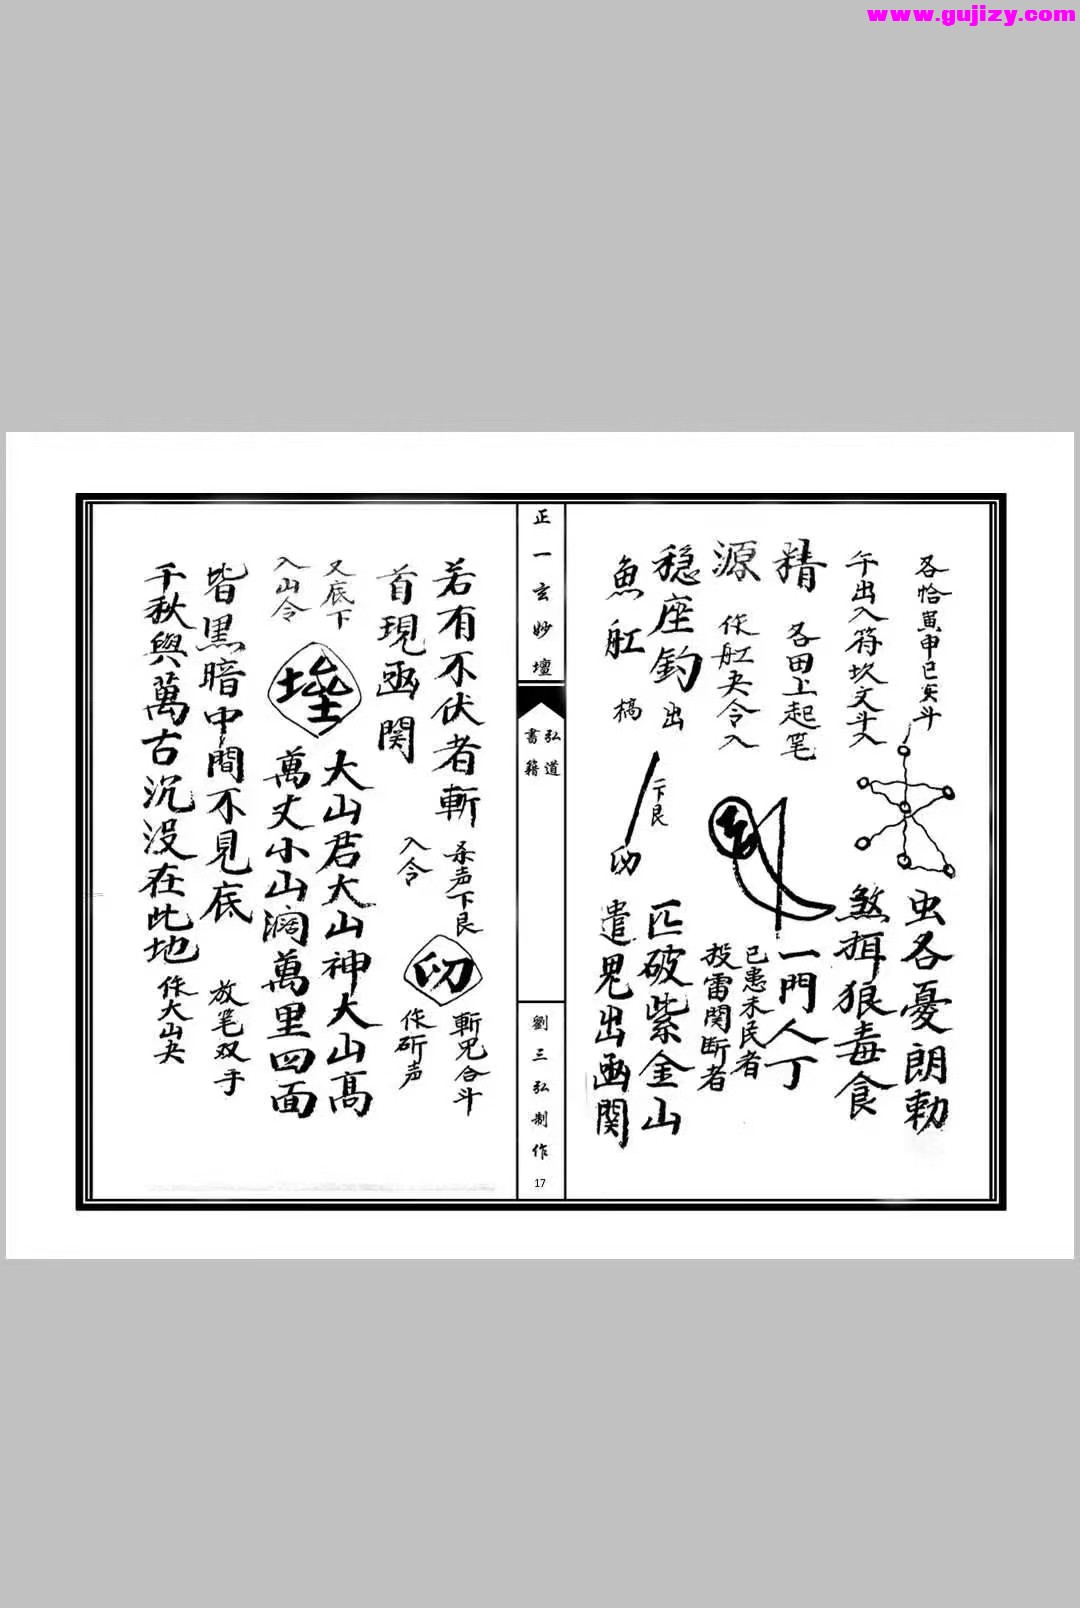 www.gujizy.com
各恰寅申巳亥斗
午出入符坎文斗入
虫各憂朗勅
煞揖狼毒食
精
各田上起笔
一門人丁
源
作舡夬令入
已患未民者
投雷関断者
稳座釣
出
匹破紫金山
魚舡
槁
下艮
遣鬼出凾関
正一玄妙壇
弘道
書籍
劉三弘制作
17
若有不伏者斬
杀声下艮
入令
斬鬼合斗
作斫声
首現凾関
又底下
入山令
大山君大山神大山髙
萬丈小山濶萬里四面
皆黒暗中間不見底
放笔双手
千秋與萬古沉没在此地
作大山夬